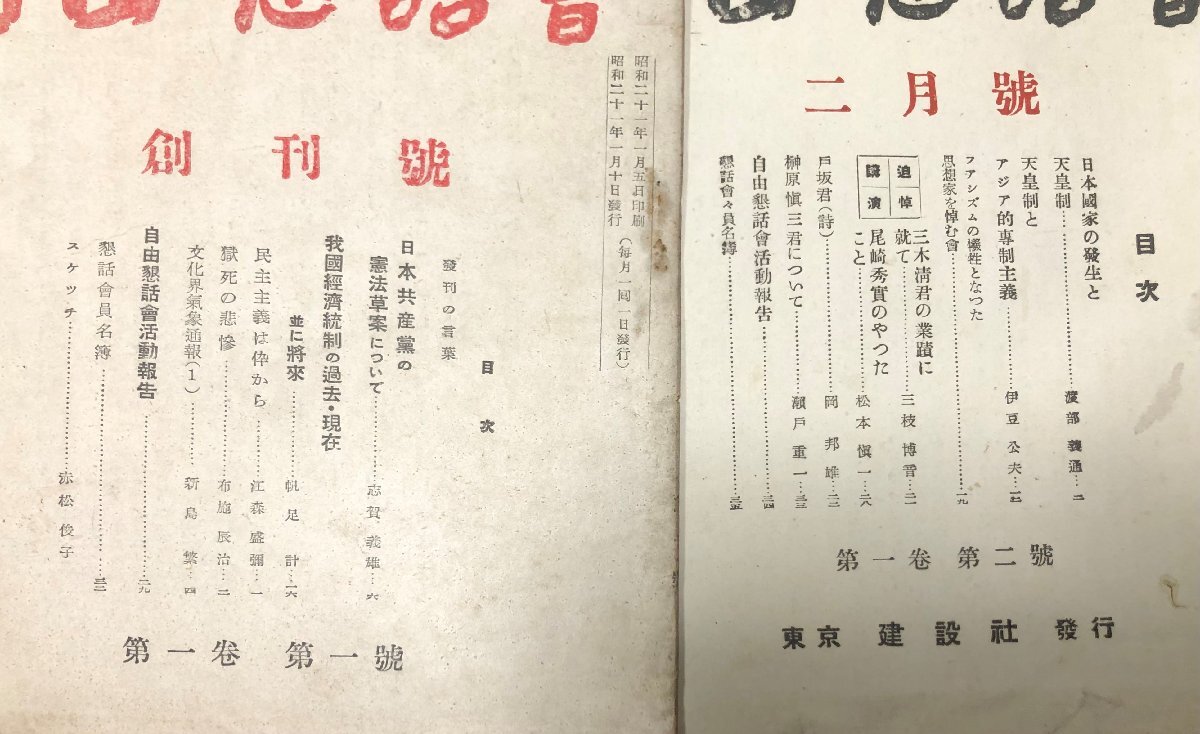 自由懇話會
創刊號
昭和二十一年一月五日印刷
昭和二十一年一月十日發行
(每月一囘一日發行)
目次
發刊の言葉
日本共産黨の
憲法草案について…志賀義雄…六
我國經濟統制の過去・現在
並に將來…帆足計…一六
民主主義は倅から…江森盛彌…一
獄死の悲慘…布施辰治…二
文化界氣象通報(1)…新島繁…四
自由懇話會活動報告…二九
懇話會員名簿…三三
スケッチ…赤松俊子
第一卷 第一號
二月號
目次
日本國家の發生と
天皇制…渡部義通…二
天皇制と
アジア的專制主義…伊豆公夫…
フアシズムの犧牲となつた
思想家を悼む會…一九
追悼
講演
三木淸君の業蹟に
就て…三枝博音…二一
尾崎秀實のやつた
こと…松本愼一…二八
戶坂君(詩)…岡邦雄…三三
榊原愼三君について…瀨戶重一…三三
自由懇話會活動報告…三四
懇話會々員名簿…三五
第一卷 第二號
東京 建設社 發行